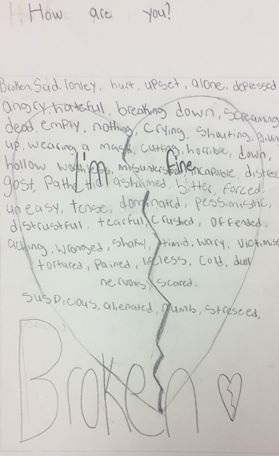 How are you?
Broken, Sad, lonley, hurt, upset, alone, depressed
angry, hateful, breaking down, screaming
dead, empty, nothing, crying, shouting,
up, wearing a mask, cutting, horrible, down,
hollow worthless, misunderstood, incapable,
I'm fine
gost, Pathetic, ashamed, bitter, forced
uneasy, tense, dominated, pessimistic,
distrustful, tearful, crushed, offended,
aching, wronged, shaky, timid, wary,
tortured, Pained, lifeless, Cold, dull
nervous, scared.
suspicious, alienated, numb, stresed,
Broken